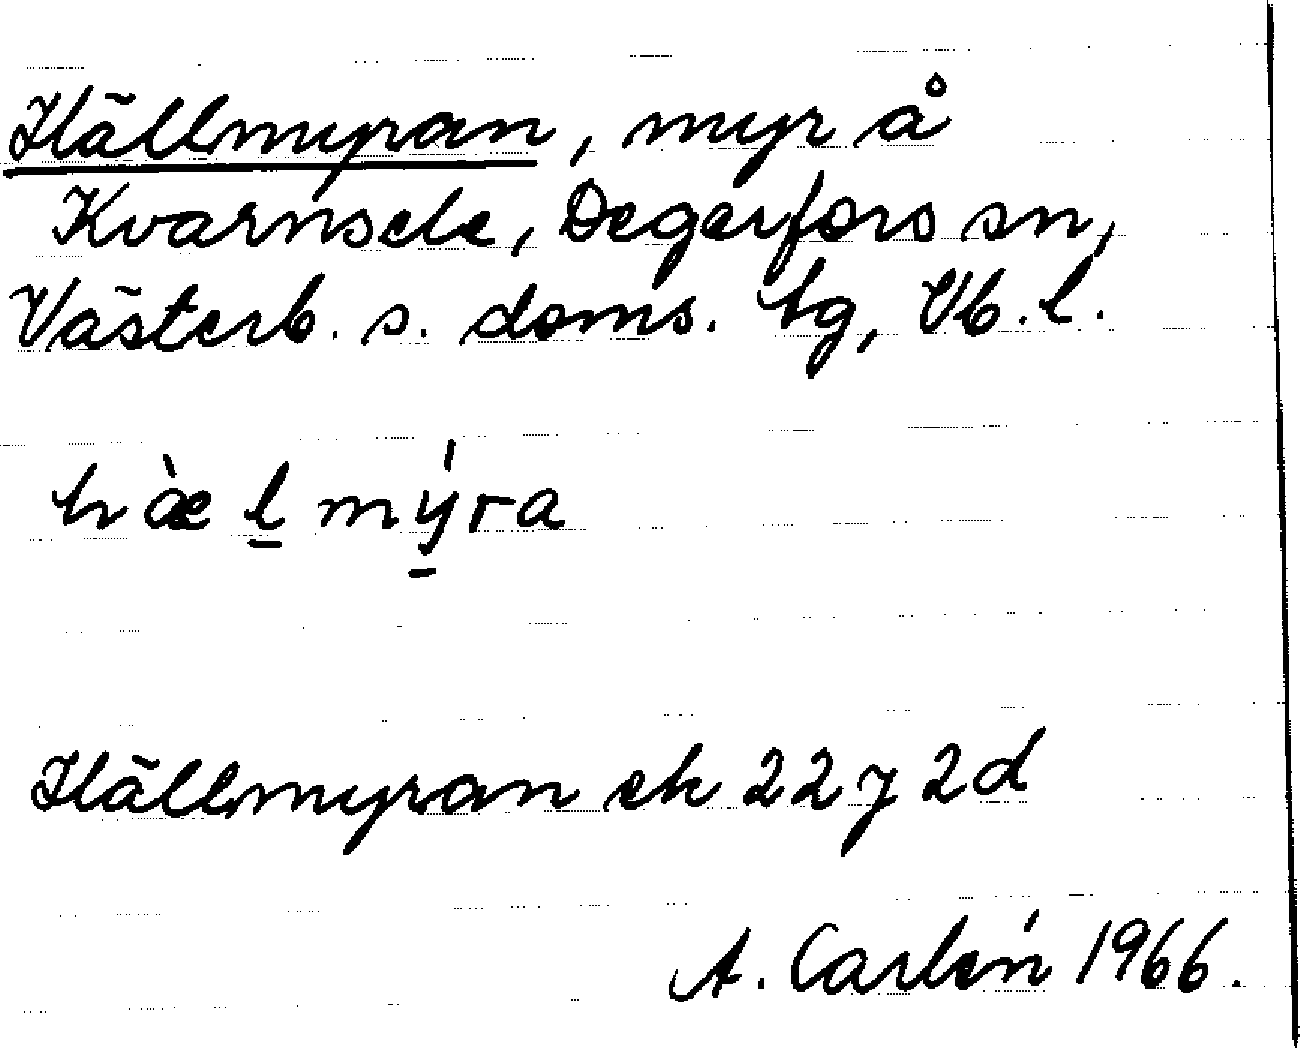 Hällmyran, myr å
Kvarnsele, Degerfors sn,
Västerb. s. doms. tg, Vb. l.
hæ̀l̲mý̲ra
Hällmyran ek 22 J 2d
A. Carlén 1966.